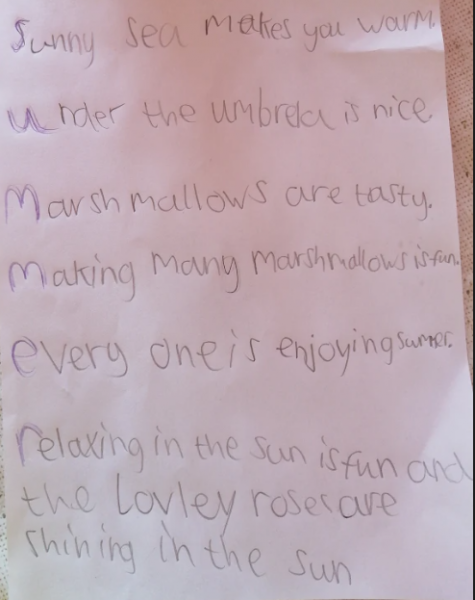 Sunny Sea makes you warm.
under the umbrela is nice.
Marshmallows are tasty.
Making Many Marshmallows is fun.
every one is enjoying sumer.
relaxing in the sun is fun and
the Lovley roses are
shining in the sun